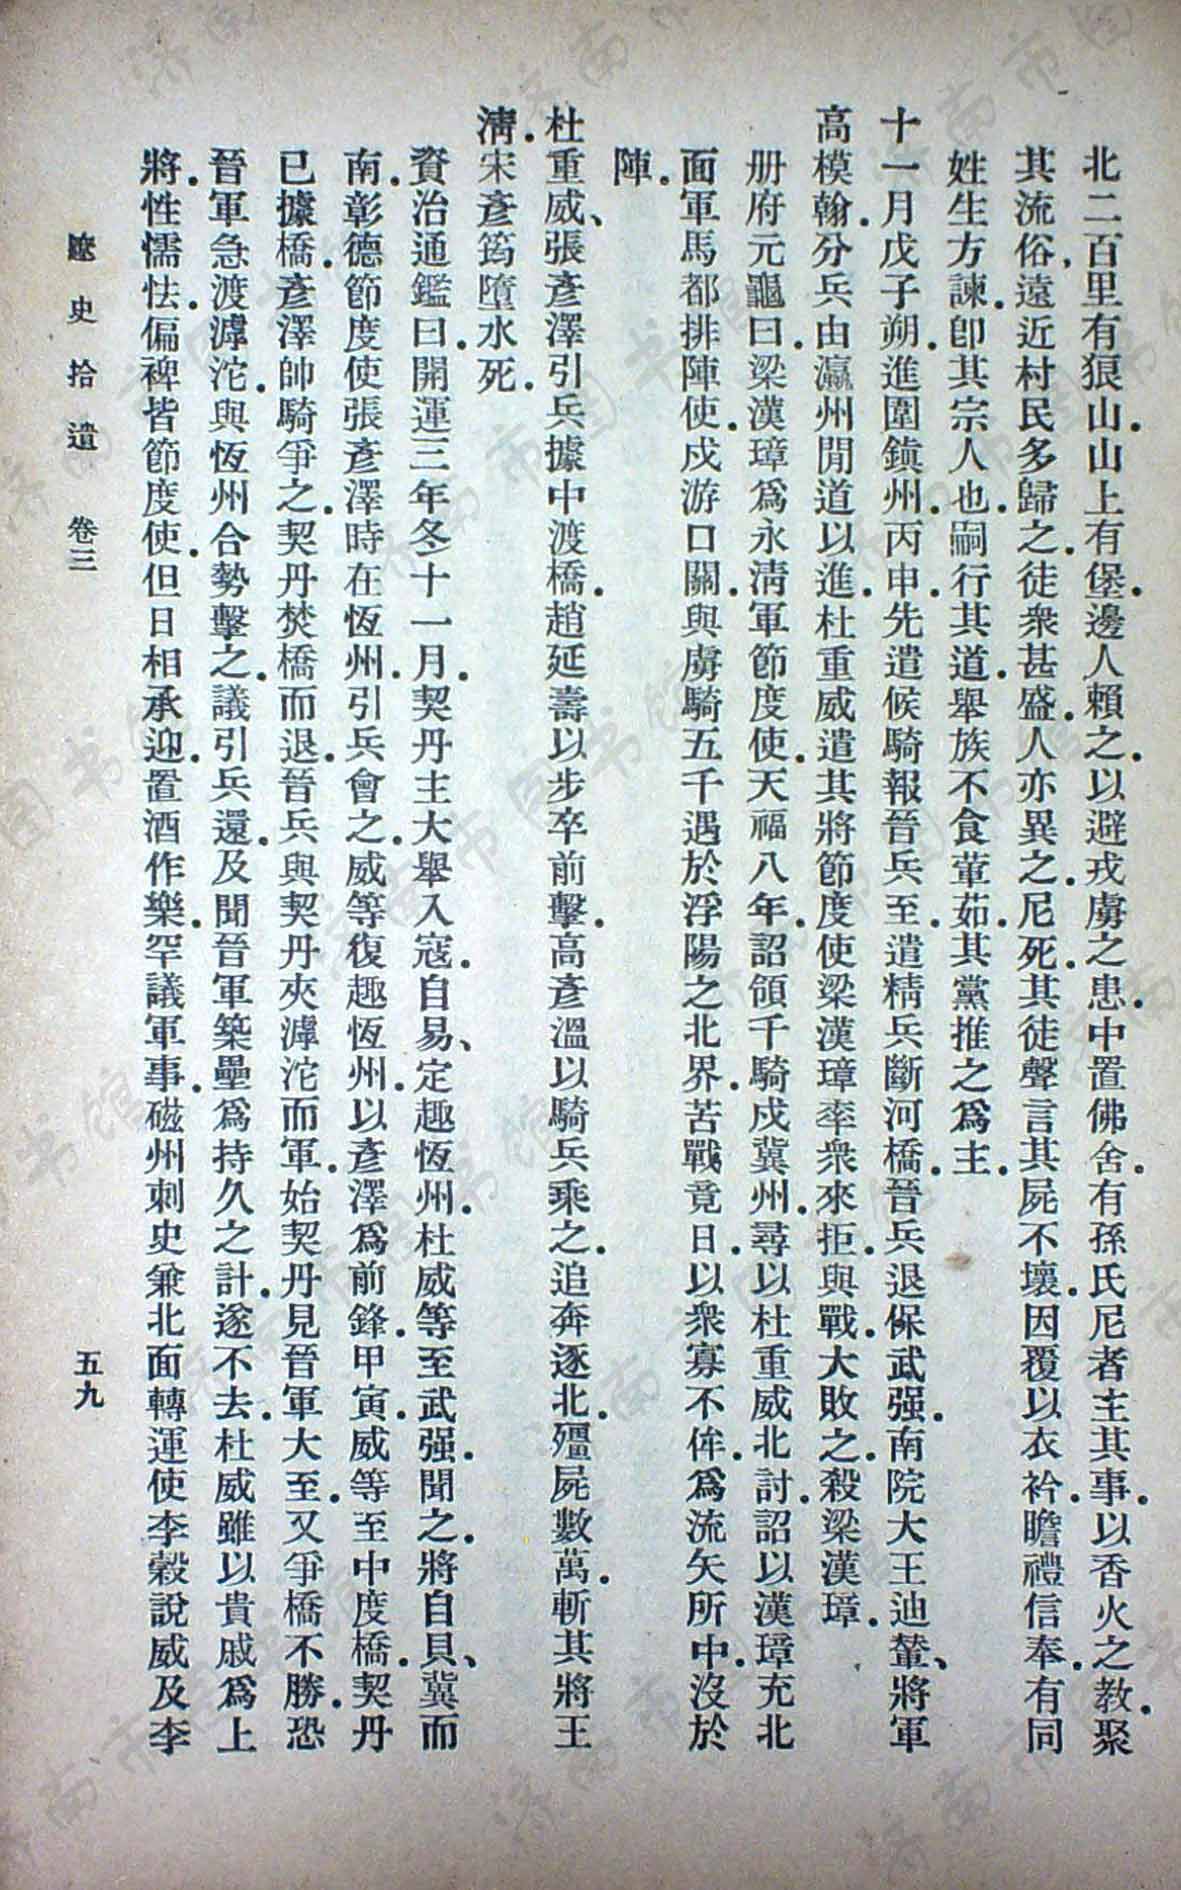 北二百里有狼山山上有堡.邊人賴之.以避戎虜之患.中置佛舍.有孫氏尼者主其事.以香火之教聚
其流俗,遠近村民多歸之.徒衆甚盛.人亦異之.尼死.其徒聲言其屍不壞.因覆以衣衿.瞻禮信奉.有同
姓生方諫.卽其宗人也.嗣行其道.舉族不食葷茹.其黨推之爲主.
十一月戊子朔.進圍鎮州.丙申.先遣候騎報晉兵至.遣精兵斷河橋.晉兵退保武强.南院大王迪輦、將軍
高模翰.分兵由瀛州閒道以進.杜重威遣其將節度使梁漢璋率衆來拒.與戰.大敗之.殺梁漢璋.
册府元龜曰.梁漢璋爲永淸軍節度使.天福八年.詔領千騎戍冀州.尋以杜重威北討.詔以漢璋充北
面軍馬都排陣使.戍游口關.與虜騎五千遇於浮陽之北界.苦戰竟日.以衆寡不侔.爲流矢所中.沒於
陣.
杜重威、張彥澤引兵據中渡橋.趙延壽以步卒前擊.高彥溫以騎兵乘之.追奔逐北.殭屍數萬.斬其將王
淸.宋彥筠墮水死.
資治通鑑曰.開運三年冬十一月.契丹主大舉入寇.自易、定趣恆州.杜威等至武强.聞之.將自貝、冀而
南.彰德節度使張彥澤時在恆州.引兵會之.威等復趣恆州.以彥澤爲前鋒.甲寅.威等至中度橋.契丹
已據橋.彥澤帥騎爭之.契丹焚橋而退.晉兵與契丹夾滹沱而軍.始契丹見晉軍大至.又爭橋不勝.恐
晉軍急渡滹沱.與恆州合勢擊之.議引兵還.及聞晉軍築壘爲持久之計.遂不去.杜威雖以貴戚爲上
將.性懦怯.偏裨皆節度使.但日相承迎.置酒作樂.罕議軍事.磁州刺史兼北面轉運使李穀說威及李
遼史拾遺 卷三 五九